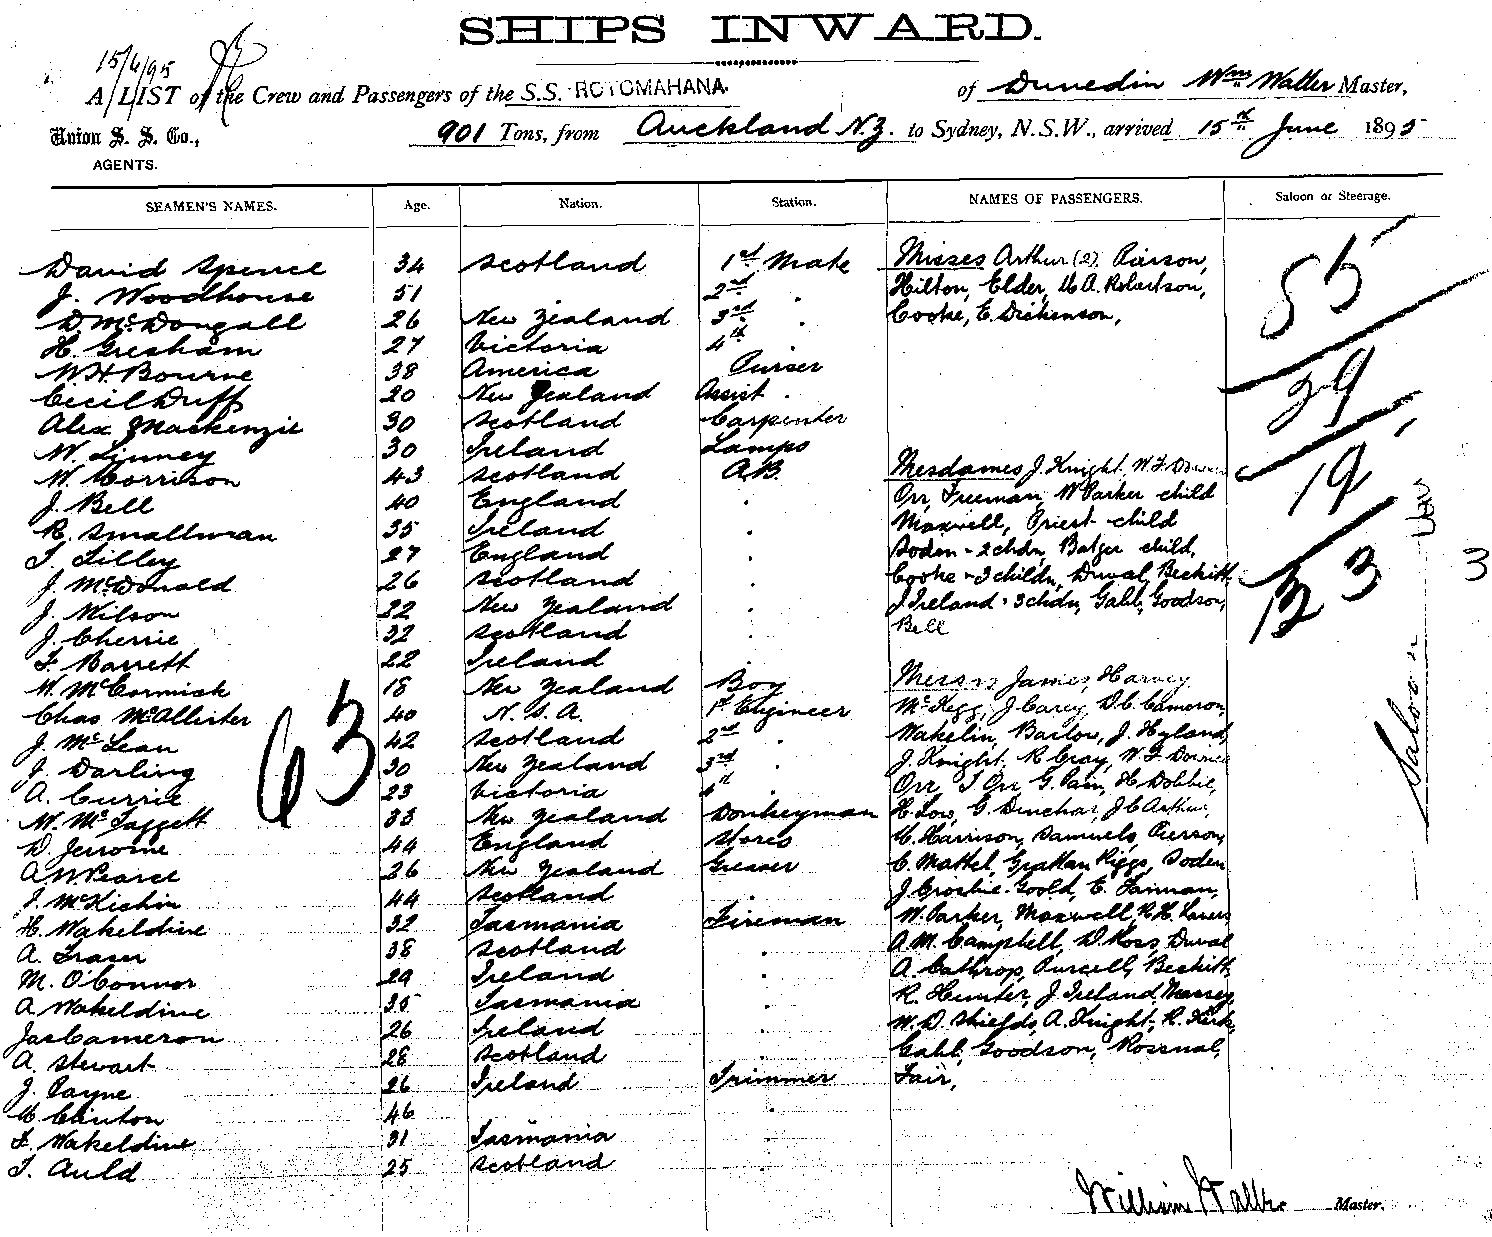 SHIPS INWARD.
15/6/95
A LIST of the Crew and Passengers of the S.S. ROTOMAHANA of Dunedin Wm Waller Master,
Union S. S. Co., 901 Tons, from Auckland N.Z. to Sydney, N.S.W., arrived 15th June 1895
AGENTS.
SEAMEN'S NAMES. Age. Nation. Station. NAMES OF PASSENGERS. Saloon or Steerage.
David Spence 34 Scotland 1st Mate Misses Arthur (2), Pierson,
J. Woodhouse 51 2nd " Hilton, Elder, M A. Robertson,
D. McDougall 26 New Zealand 3rd " Cooke, E. Dickenson,
H. Gresham 27 Victoria 4th
W. H. Bourne 38 America Purser
Cecil Duff 20 New Zealand Assist "
Alex Mackenzie 30 Scotland Carpenter
W. Linney 30 Ireland Lamps
W. Morrison 43 Scotland A.B. Mesdames J. Knight, W. F.
J. Bell 40 England " Orr, Freeman, W Parker child
R. Smallman 35 Ireland " Maxwell, Priest - child
T. Tilley 27 England " Soden - 2 chdn, Balger child,
J. McDonald 26 Scotland " Cooke - 3 childn, Duval, Beckitt,
J. Wilson 22 New Zealand " J Ireland - 3 chdn, Gabb, Goodson,
J. Cherrie 32 Scotland " Bell
F. Barrett 22 Ireland "
W. McCormick 18 New Zealand Boy Messrs James, Harvey
Chas McAllister 40 N. S. A. 1st Engineer McKegg, J Carey, D. C. Cameron,
J. McLean 42 Scotland 2nd " Wakelin, Barlow, J. Hyland,
J. Darling 30 New Zealand 3rd " J. Knight, R Gray, W. F.
A. Currie 23 Victoria 4th Orr, T Orr, G. Pain, H Dobbie,
W. McTaggett 33 New Zealand Donkeyman H. Low, G. J C Arthur,
D. Jerrome 44 England Stores M. Harrison, Samuels, Pierson,
A. W. Pearce 26 New Zealand Greaser C. Mattel, Grattan Riggs, Soden
J. McKichin 44 Scotland " J. Crosbie Goold, E. Fairman,
H. Wakeldine 32 Tasmania Fireman W. Parker, Maxwell, R. H.
A. Fraser 38 Scotland " A. M. Campbell, D. Ross, Duval
M. O'Connor 29 Ireland " A. Cathrop, Purcell, Beckitt,
A. Wakeldine 35 Tasmania " R. Hunter, J. Ireland, Massey,
Jas Cameron 26 Ireland " W. D. Shields, A. Knight, R. Kirk,
A. Stewart 28 Scotland " Gabb, Goodson, Rossnal,
J. Payne 26 Ireland Trimmer Fair,
M. Clinton 46 "
F. Wakeldine 31 Tasmania
T. Auld 25 Scotland
63
55
29
19
3
3
Saloon
William Waller Master.